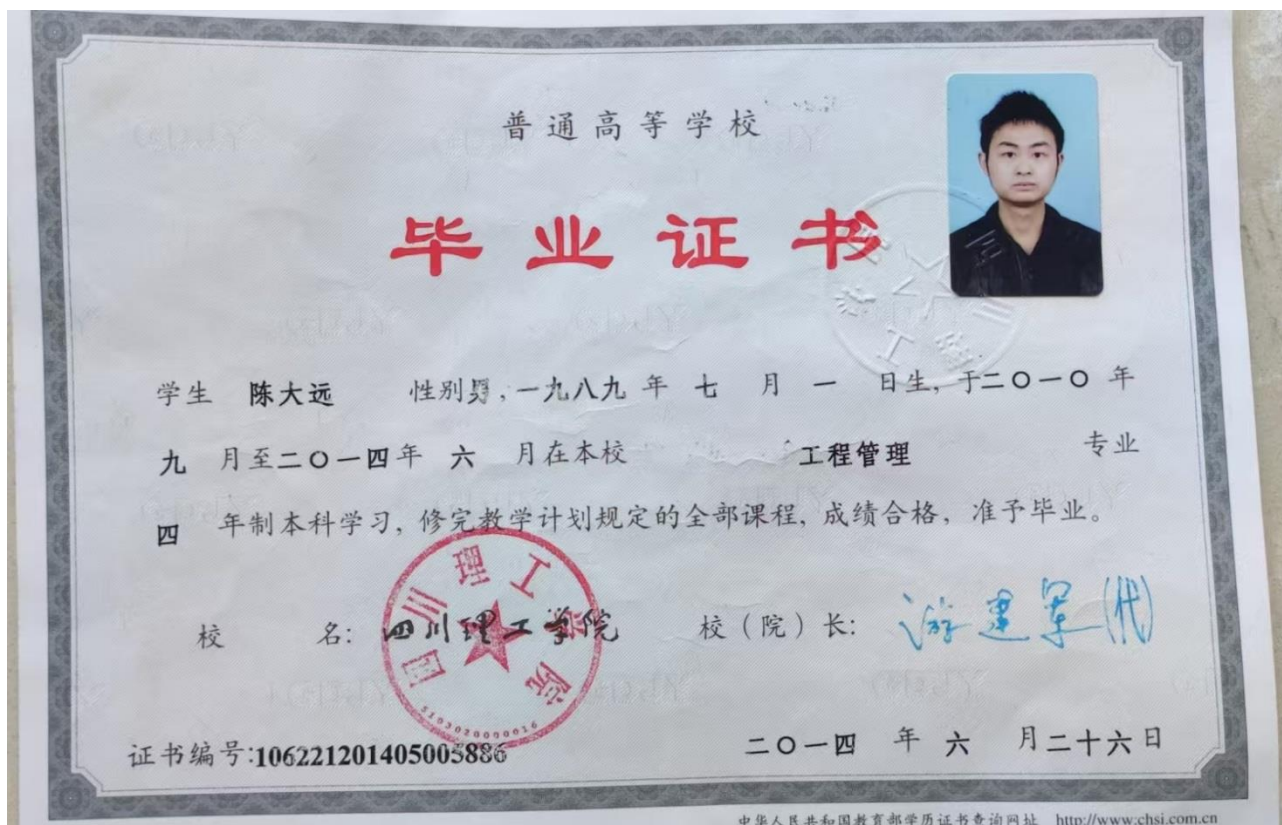 普通高等学校
毕业证书
学生 陈大远 性别男,一九八九 年 七 月 一 日生, 于二〇一〇 年
九 月至二〇一四年 六 月在本校 工程管理 专业
四 年制本科学习, 修完教学计划规定的全部课程, 成绩合格, 准予毕业。
校 名: 四川理工学院 校（院）长: 游建军(代)
四川理工学院
5103020000016
证书编号:106221201405005886 二〇一四 年 六 月二十六日
中华人民共和国教育部学历证书查询网址 http://www.chsi.com.cn